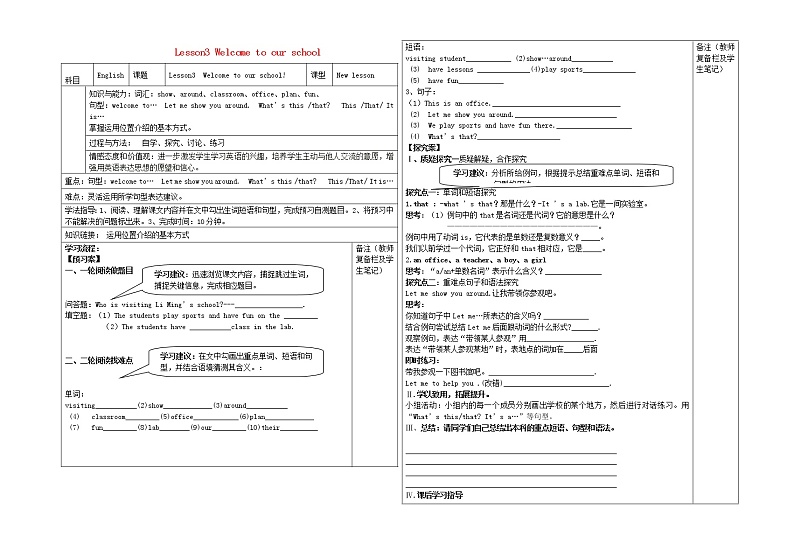 Lesson3 Welcome to our school
科目 English 课题 Lesson3 Welcome to our school! 课型 New lesson
知识与能力:词汇:show、around、classroom、office、plan、fun、
句型:welcome to… Let me show you around. What’s this /that? This /That/ It
is…
掌握运用位置介绍的基本方式。
过程与方法: 自学、探究、讨论、练习
情感态度和价值观:进一步激发学生学习英语的兴趣,培养学生主动与他人交流的意愿,增
强用英语表达思想的愿望和信心。
重点:句型:welcome to… Let me show you around. What’s this /that? This /That/ It is…
难点:灵活运用所学句型表达建议。
学法指导:1、阅读、理解课文内容并在文中勾出生词短语和句型,完成预习自测题目。2、将预习中
不能解决的问题标出来。3、完成时间:10分钟。
知识链接: 运用位置介绍的基本方式
学习流程:
【预习案】
一、一轮阅读做题目
学习建议:迅速浏览课文内容,捕捉跳过生词,
捕捉关键信息,完成相应题目。
问答题:Who is visiting Li Ming’s school?---________________.
填空题:(1) The students play sports and have fun on the ________
(2) The students have __________class in the lab.
二、二轮阅读找难点
学习建议:在文中勾画出重点单词、短语和句
型,并结合语境猜测其含义。:
单词:
visiting__________(2)show____________(3)around__________
(4) classroom________(5)office__________(6)plan____________
(7) fun________(8)lab_______(9)our_______(10)their_________
备注(教师
复备栏及学
生笔记)
短语:
visiting student___________ (2)show…around__________
(3) have lessons _____________(4)play sports_____________
(5) have fun___________
3、句子:
(1)This is an office.______________________________
(2) Let me show you around.________________________
(3) We play sports and have fun there.__________________
(4) What’s that?__________________________
【探究案】
Ⅰ、质疑探究—质疑解疑,合作探究
学习建议:分析所给例句,根据提示总结重难点单词、短语和
探究点一:单词和短语探究
1.that :-what’s that?那是什么?-It’s a lab.它是一间实验室。
思考:(1)例句中的that是名词还是代词?它的意思是什么?
______________________________________________。
例句中用了动词is,它代表的是单数还是复数意义?_____。
我们以前学过一个代词,它正好和that相对应,它是_____。
2.an office、a teacher、a boy、a girl
思考:“a/an+单数名词”表示什么含义?______________
探究点二:重难点句子和语法探究
Let me show you around.让我带领你参观吧。
思考:
你知道句子中Let me…所表达的含义吗?___________
结合例句尝试总结Let me后面跟动词的什么形式?______.
观察例句,表达“带领某人参观”用________________.
表达“带领某人参观某地”时,表地点的词加在_____后面
即时练习:
带我参观一下图书馆吧。_________________________.
Let me to help you .(改错)_________________________.
Ⅱ.学以致用,拓展提升。
小组活动:小组内的每一个成员分别画出学校的某个地方,然后进行对话练习。用
“What’s this/that? It’s a…”等句型.
Ⅲ.总结:请同学们自己总结出本科的重点短语、句型和语法。
Ⅳ.课后学习指导
备注(教师
复备栏及学
生笔记)